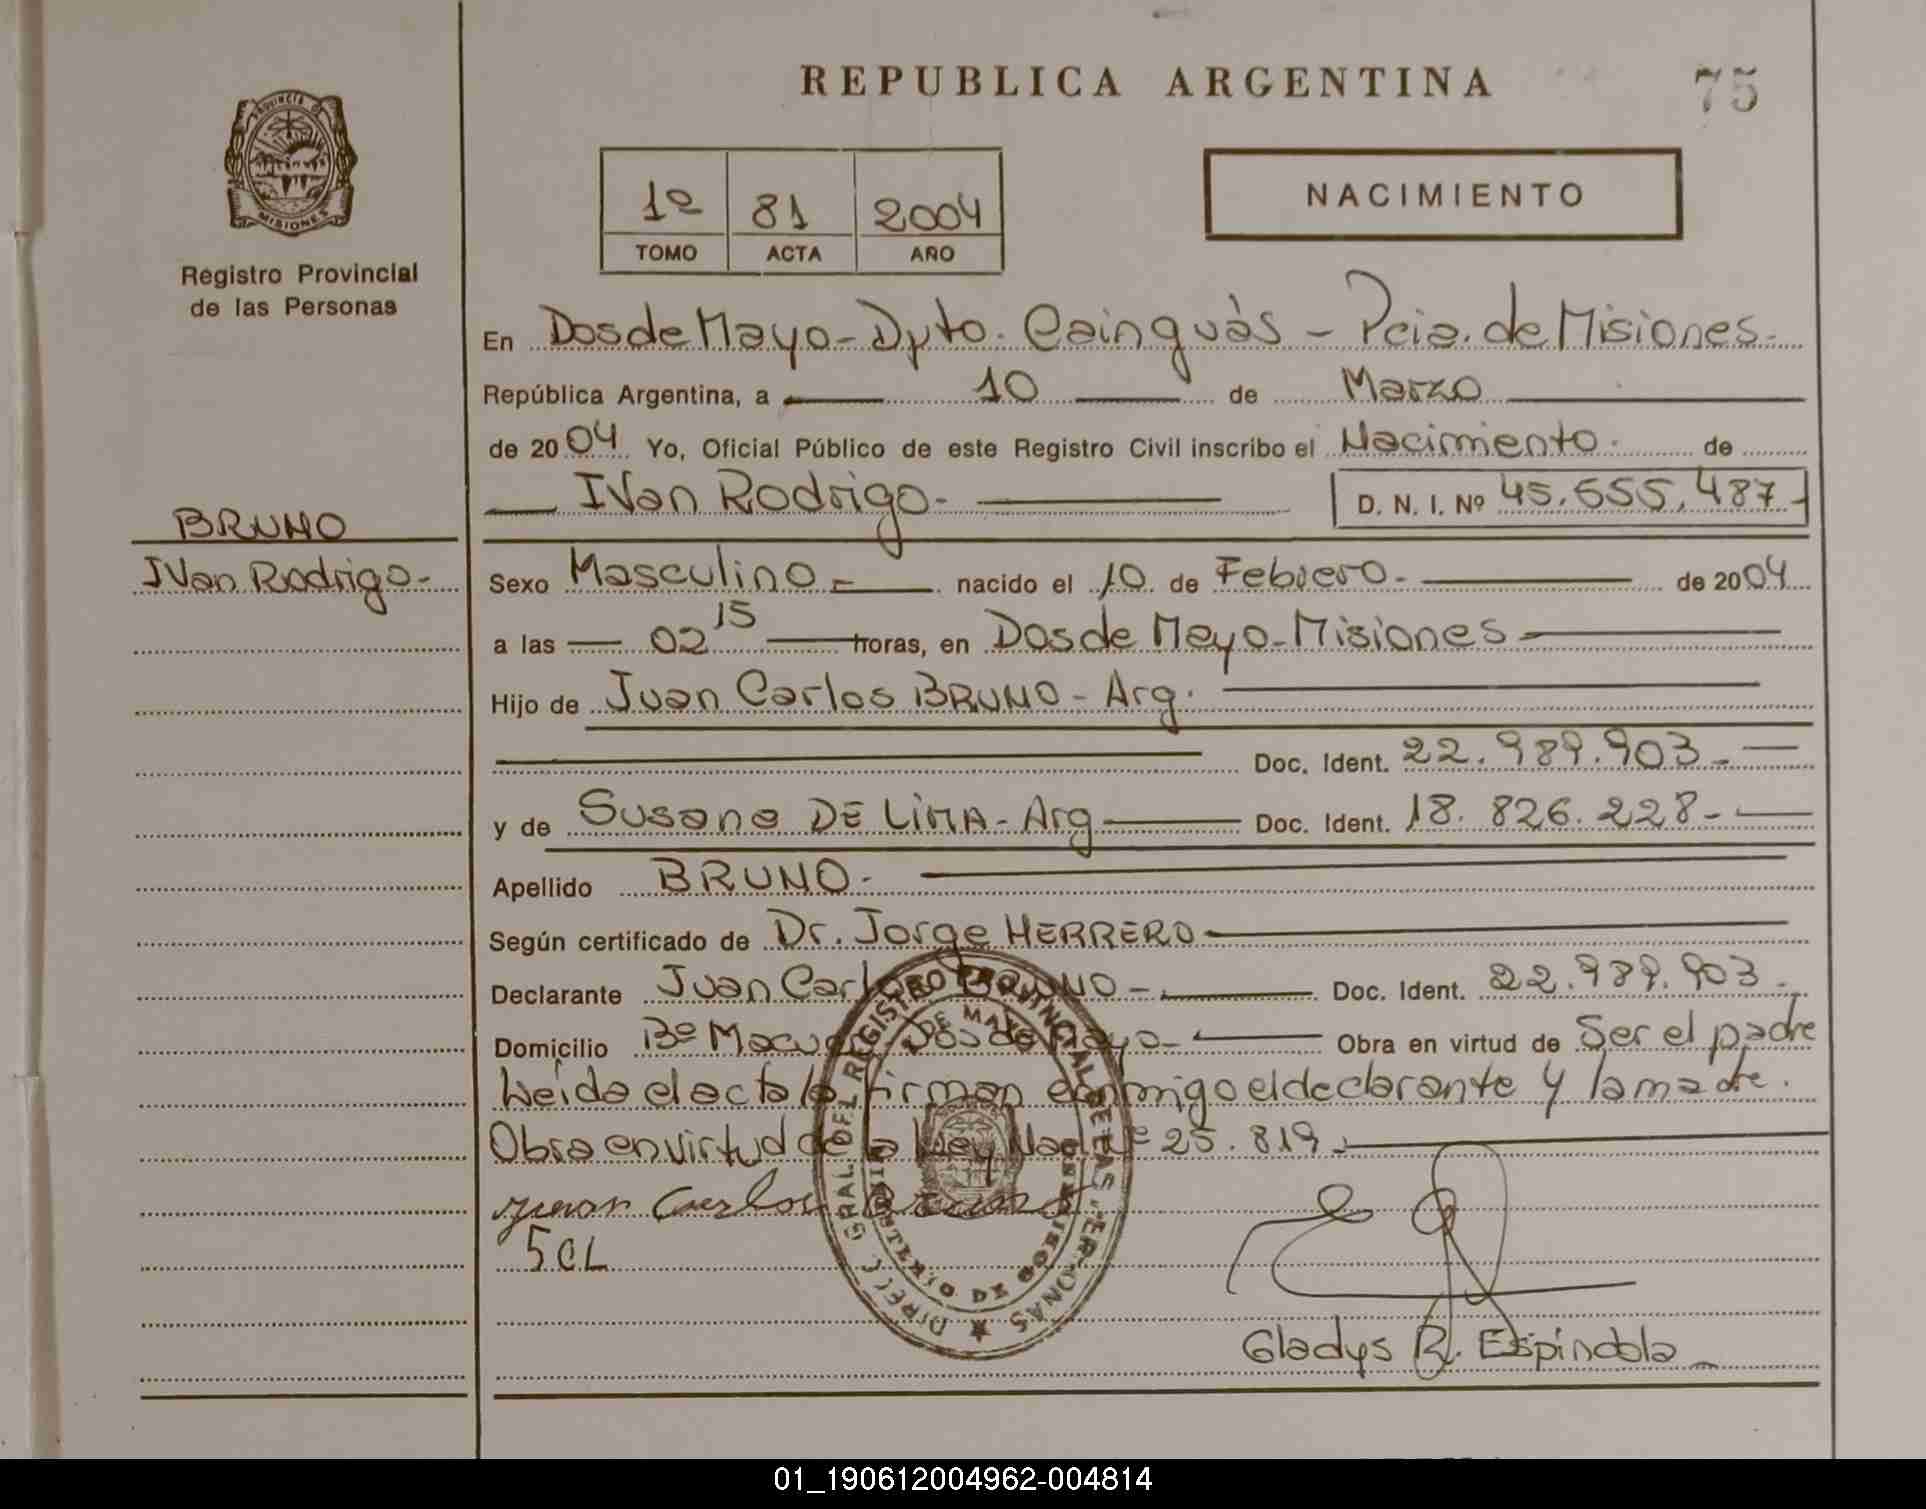 REPUBLICA ARGENTINA
75
PROVINCIA DE MISIONES
Registro Provincial
de las Personas
1º 81 2004
TOMO ACTA AÑO
NACIMIENTO
En Dos de Mayo - Dpto. Cainguàs - Pcia. de Misiones.
República Argentina, a 10 de Marzo
de 2004 Yo, Oficial Público de este Registro Civil inscribo el Nacimiento. de
Ivan Rodrigo. D. N. I. Nº 45.555.487-
BRUNO
Ivan Rodrigo.-
Sexo Masculino.- nacido el 10 de Febrero. de 2004
a las 02 15 horas, en Dos de Mayo - Misiones
Hijo de Juan Carlos BRUNO - Arg.
Doc. Ident. 22.989.903-
y de Susana DE LIMA - Arg Doc. Ident. 18.826.228-
Apellido BRUNO.
Según certificado de Dr. Jorge HERRERO
Declarante Juan Carlos BRUNO - Doc. Ident. 22.989.903.
Domicilio Bº - Dos de Mayo - Obra en virtud de Ser el padre
Leida el acta la firman conmigo el declarante y la madre.
Obra en virtud de la Ley Nac. Nº 25.819.
Juan Carlos Bruno
SCL
DIRECC. GRAL. DEL REGISTRO PROVINCIAL DE LAS PERSONAS
DE MAYO
MINISTERIO DE GOBIERNO
Gladys R. Espindola
01_190612004962-004814